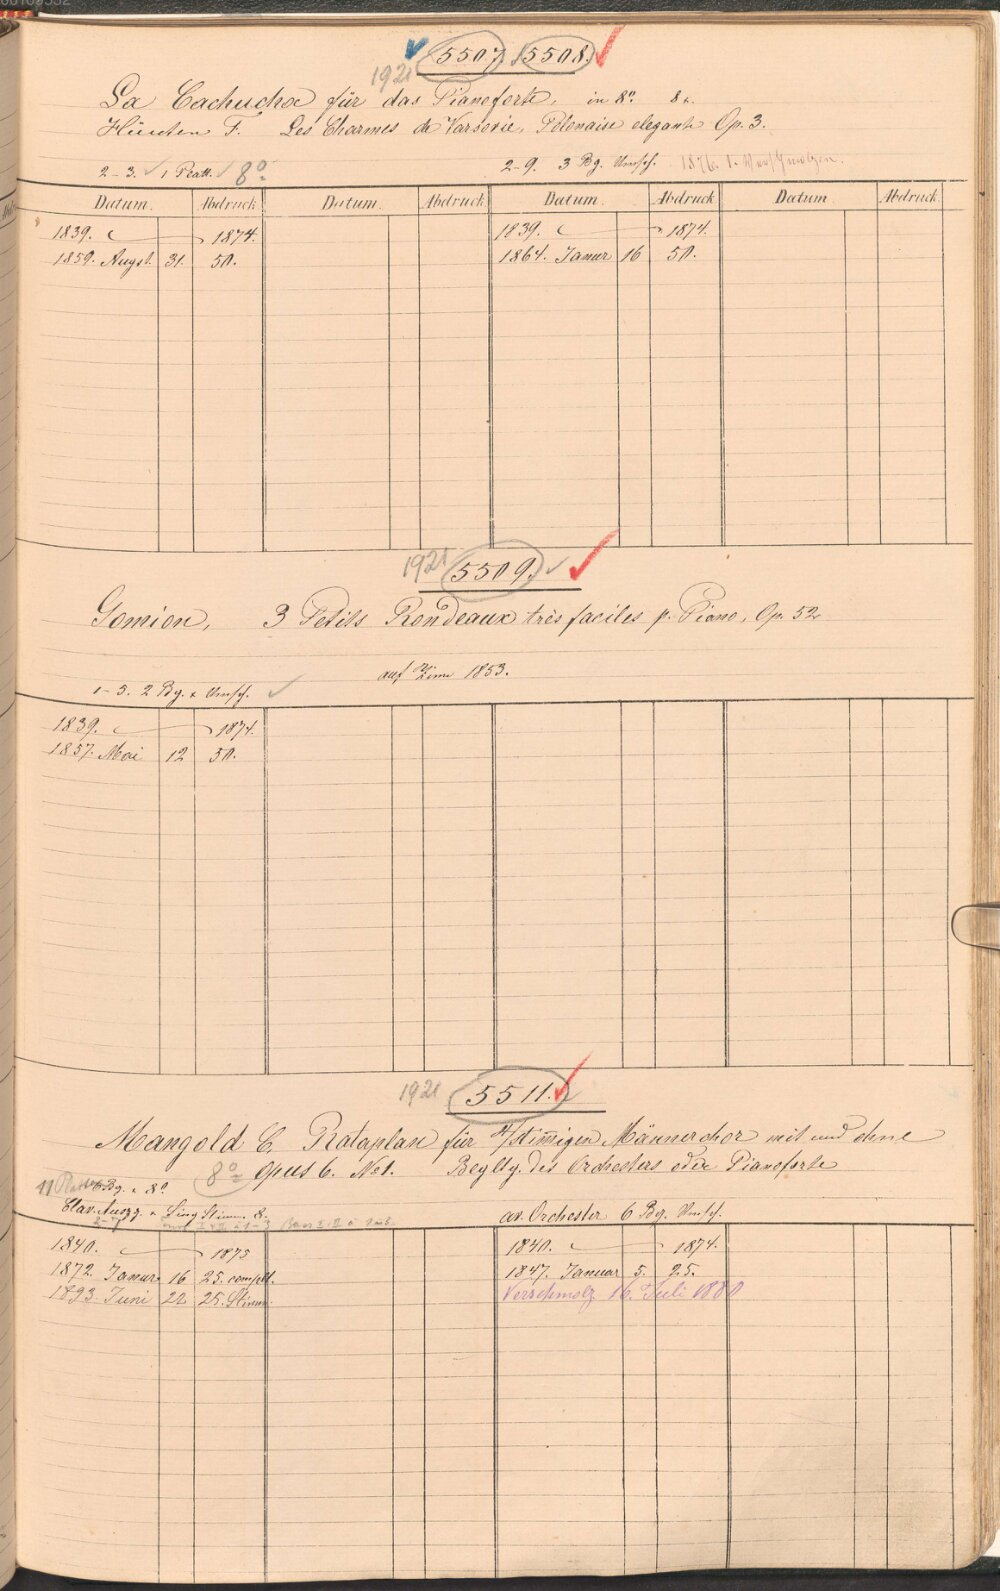 1921 5507. 5508.
La Cachucha für das Pianoforte, in 8º.
Hünten F. Les Charmes de Varsovie, Polonaise elegante Op. 3.
2-3. 1 Platt. 8º
2-9. 3 Bg. Umsch. 1876. 1.
Datum. Abdruck Datum. Abdruck Datum. Abdruck Datum Abdruck
1839. 1874. 1839. 1874.
1859. Augst. 31. 50. 1864. Januar 16 50.
1921 5509.
Gomion, 3 Petits Rondeaux très faciles p. Piano, Op. 52
auf Zinn 1853.
1-5. 2 Bg. & Umsch.
1839. 1874.
1857. Mai 12 50.
1921 5511.
Mangold C. Rataplan für 4/stimigen Männerchor mit und ohne
8º Opus 6. No 1. Begltg. des Orchesters oder Pianoforte
11 Platten Bg. 8º
Clav. Auszg. & Sing Stimm. 8.
av. Orchester 6 Bg. Umsch.
1840. 1875 1840. 1874.
1872 Januar 16 25. complt. 1847. Januar 5. 25.
1893 Juni 22 25. Stimm. Verschmolz 16. Juli 1880